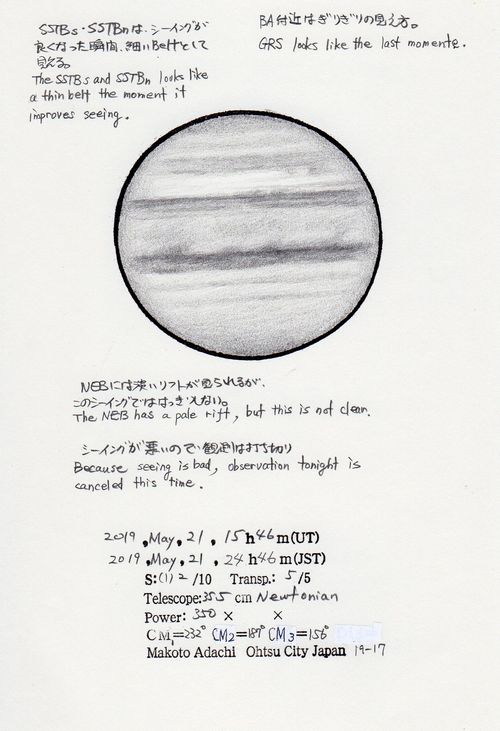 SSTBs・SSTBnは、シーイングが
良くなった瞬間、細いBeltとして
見える。
The SSTBs and SSTBn looks like
a thin belt the moment it
improves seeing.
BA付近はぎりぎりの見え方。
GRS looks like the last moments.
NEBには淡いリフトが見られるが、
このシーイングでははっきりしない。
The NEB has a pale rift, but this is not clear.
シーイングが悪いので観測は打ち切り
Because seeing is bad, observation tonight is
canceled this time.
2019 ,May, 21 , 15 h 46 m(UT)
2019 ,May, 21 , 24 h 46 m(JST)
S:(1) 2 /10 Transp.: 5 /5
Telescope: 355 cm Newtonian
Power: 350 × ×
CM1=232° CM2=187° CM3=156°
Makoto Adachi Ohtsu City Japan 19-17